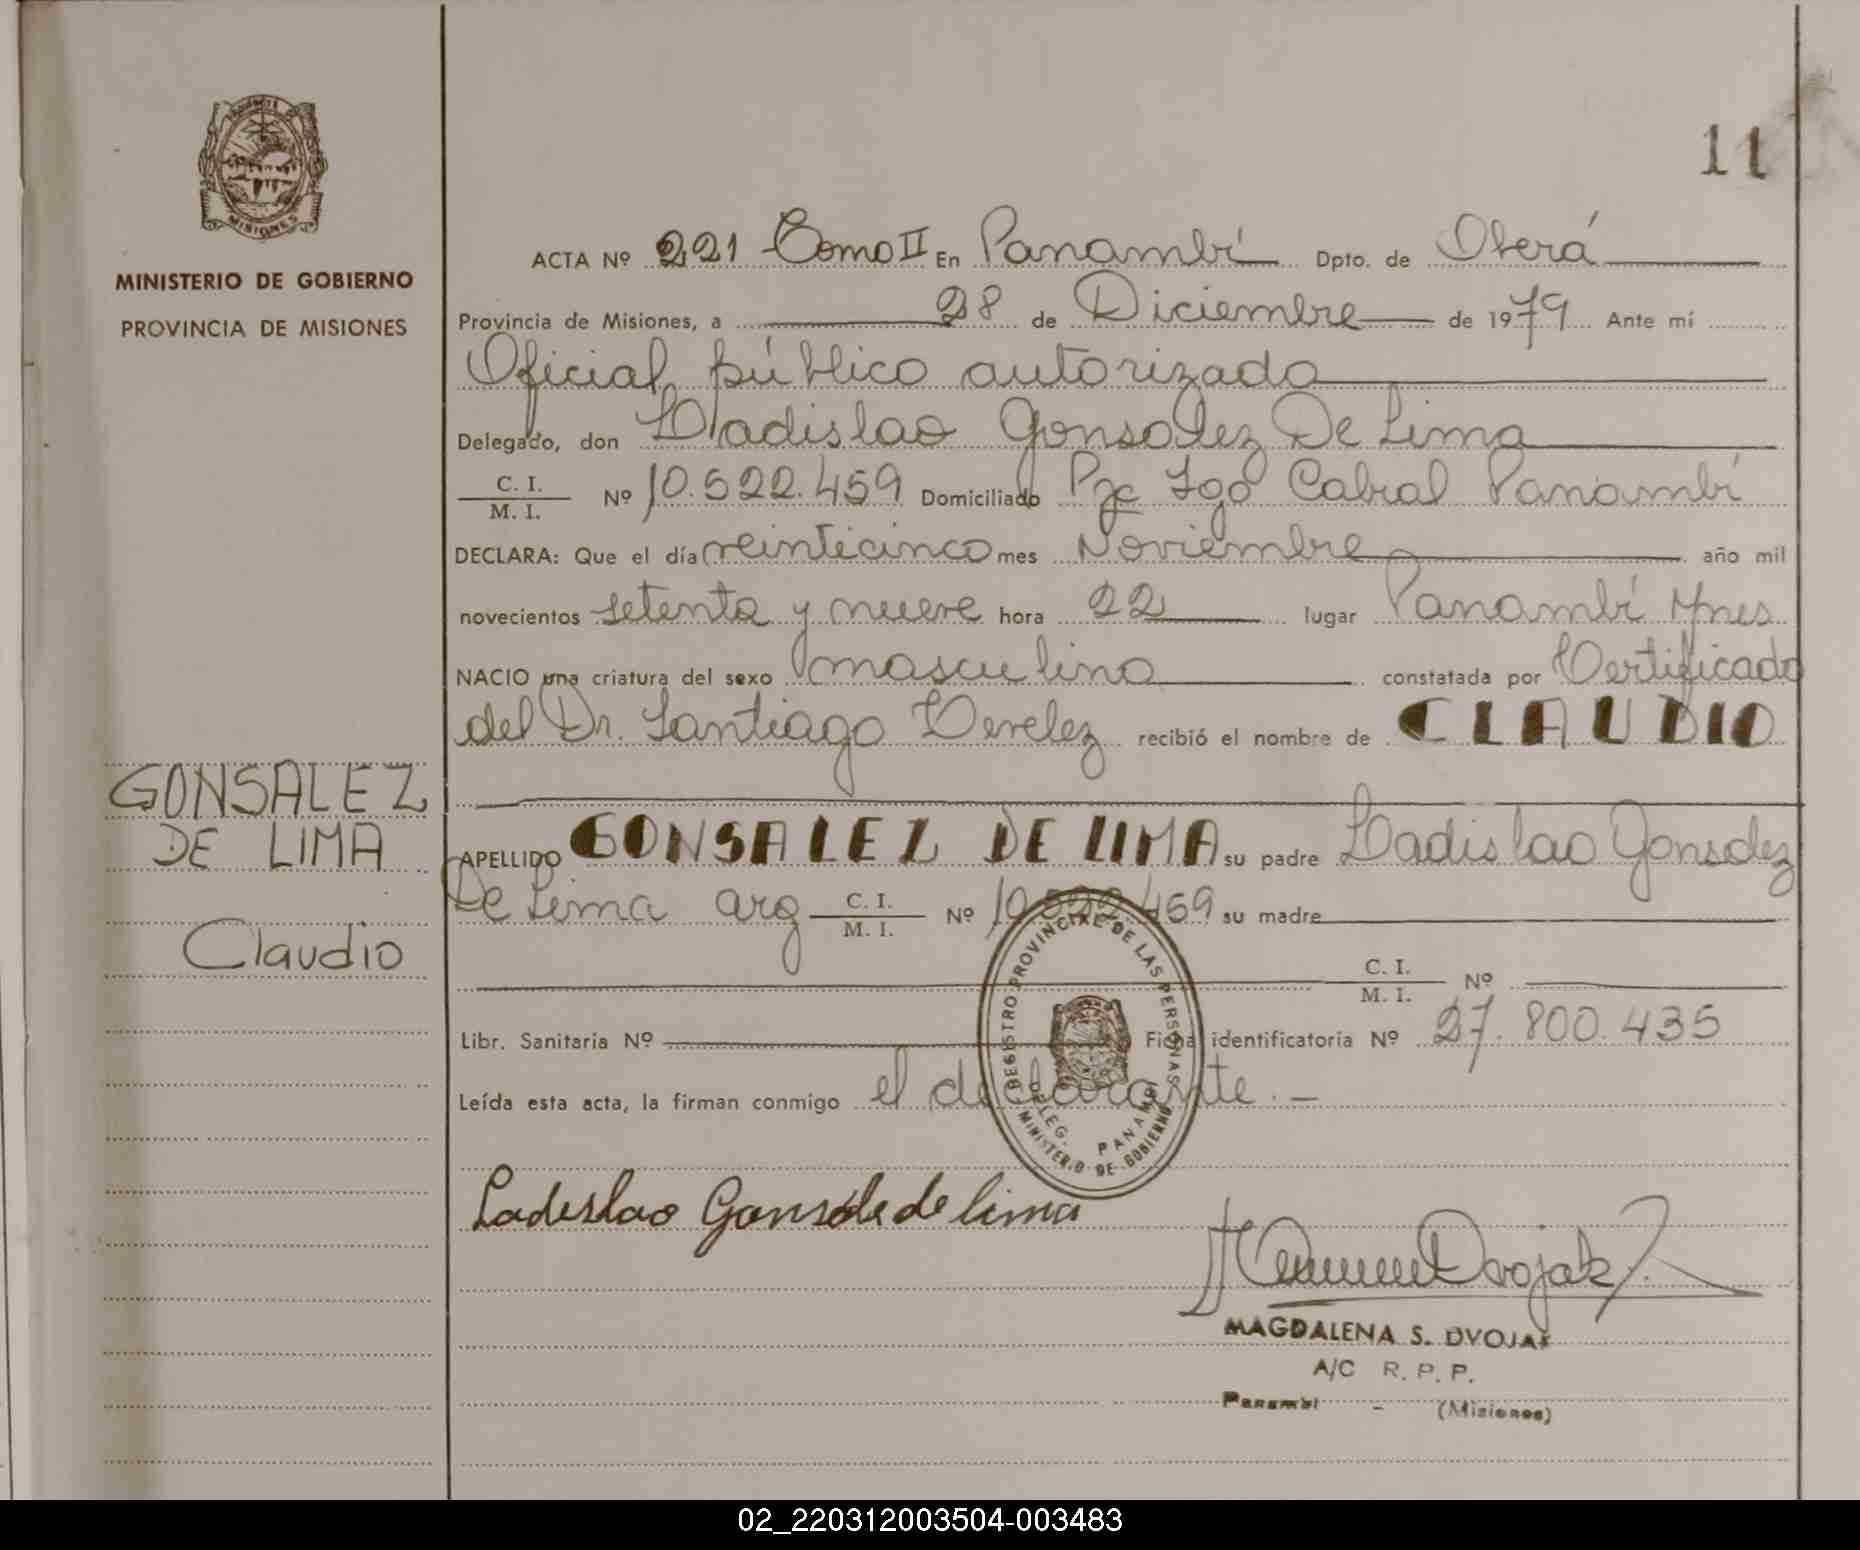 11
MISIONES
MINISTERIO DE GOBIERNO
PROVINCIA DE MISIONES
ACTA Nº 221 Tomo II En Panambí Dpto. de Oberá
Provincia de Misiones, a 28 de Diciembre de 1979 Ante mí
Oficial público autorizado
Delegado, don Ladislao Gonsalez De Lima
C. I.
M. I. Nº 10.522.459 Domiciliado Pje Sgo Cabral Panambí
DECLARA: Que el día veinticinco mes Noviembre año mil
novecientos setenta y nueve hora 22 lugar Panambí Mnes
NACIO una criatura del sexo masculino constatada por Certificado
del Dr. Santiago recibió el nombre de CLAUDIO
GONSALEZ
DE LIMA
Claudio
APELLIDO GONSALEZ DE LIMA su padre Ladislao Gonsalez
De Lima arg C. I.
M. I. Nº 10.522.459 su madre
C. I.
M. I. Nº
Libr. Sanitaria Nº Ficha identificatoria Nº 27.800.435
Leída esta acta, la firman conmigo el declarante.-
REGISTRO PROVINCIAL DE LAS PERSONAS
DELEG. PANAMBI
MINISTERIO DE GOBIERNO
Ladislao Gonsale de lima
Dvojak
MAGDALENA S. DVOJAK
A/C R. P. P.
Panambi - (Misiones)
02_220312003504-003483